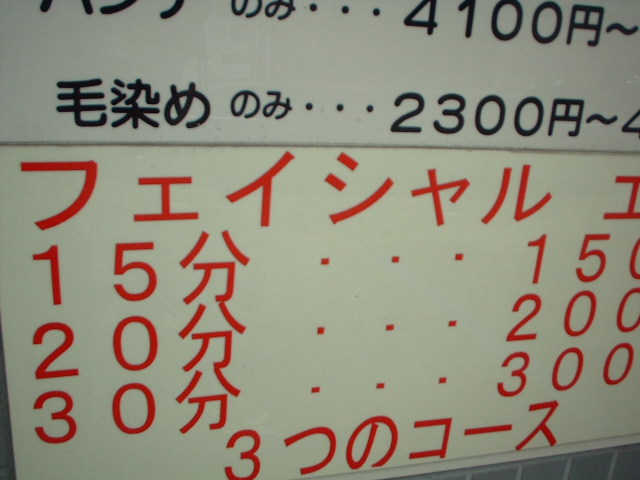 のみ・・・4100円～
毛染め のみ・・・2300円～4
フェイシャル エ
15分 ・・・150
20分 ・・・200
30分 ・・・300
3つのコース